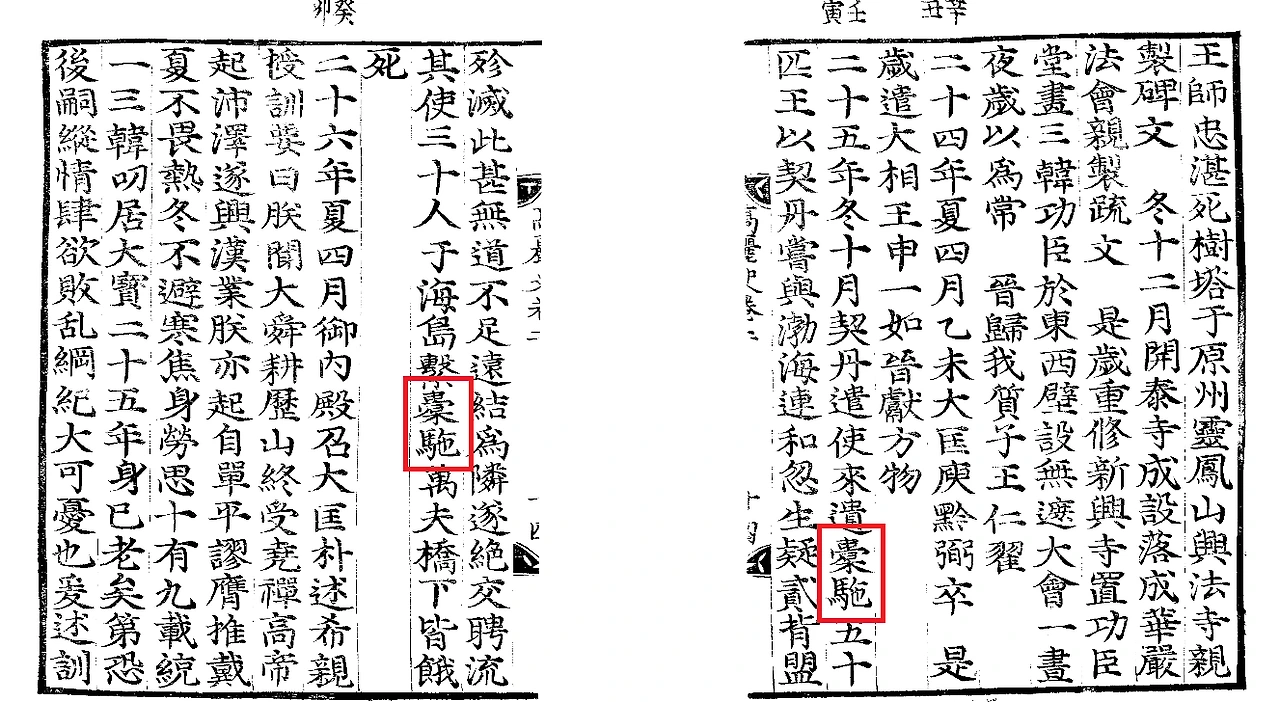 辛丑
壬寅
王師忠湛死樹塔于原州靈鳳山興法寺親
製碑文　冬十二月開泰寺成設落成華嚴
法會親製䟽文　是歲重修新興寺置功臣
堂畫三韓功臣於東西壁設無遮大會一晝
夜歲以爲常　晉歸我質子王仁翟
二十四年夏四月乙未大匡庾黔弼卒　是
歲遣大相王申一如晉獻方物
二十五年冬十月契丹遣使來遺橐駞五十
匹王以契丹嘗與渤海連和忽生疑貳背盟
高麗史卷二　十四
癸卯
高麗史卷二　十四
殄滅此甚無道不足遠結爲隣遂絶交聘流
其使三十人于海島繫橐駞萬夫橋下皆餓
死
二十六年夏四月御內殿召大匡朴述希親
授訓要曰朕聞大舜耕歷山終受堯禪高帝
起沛澤遂興漢業朕亦起自單平謬膺推戴
夏不畏熱冬不避寒焦身勞思十有九載統
一三韓叨居大寶二十五年身已老矣第恐
後嗣縱情肆欲敗乱綱紀大可憂也爰述訓